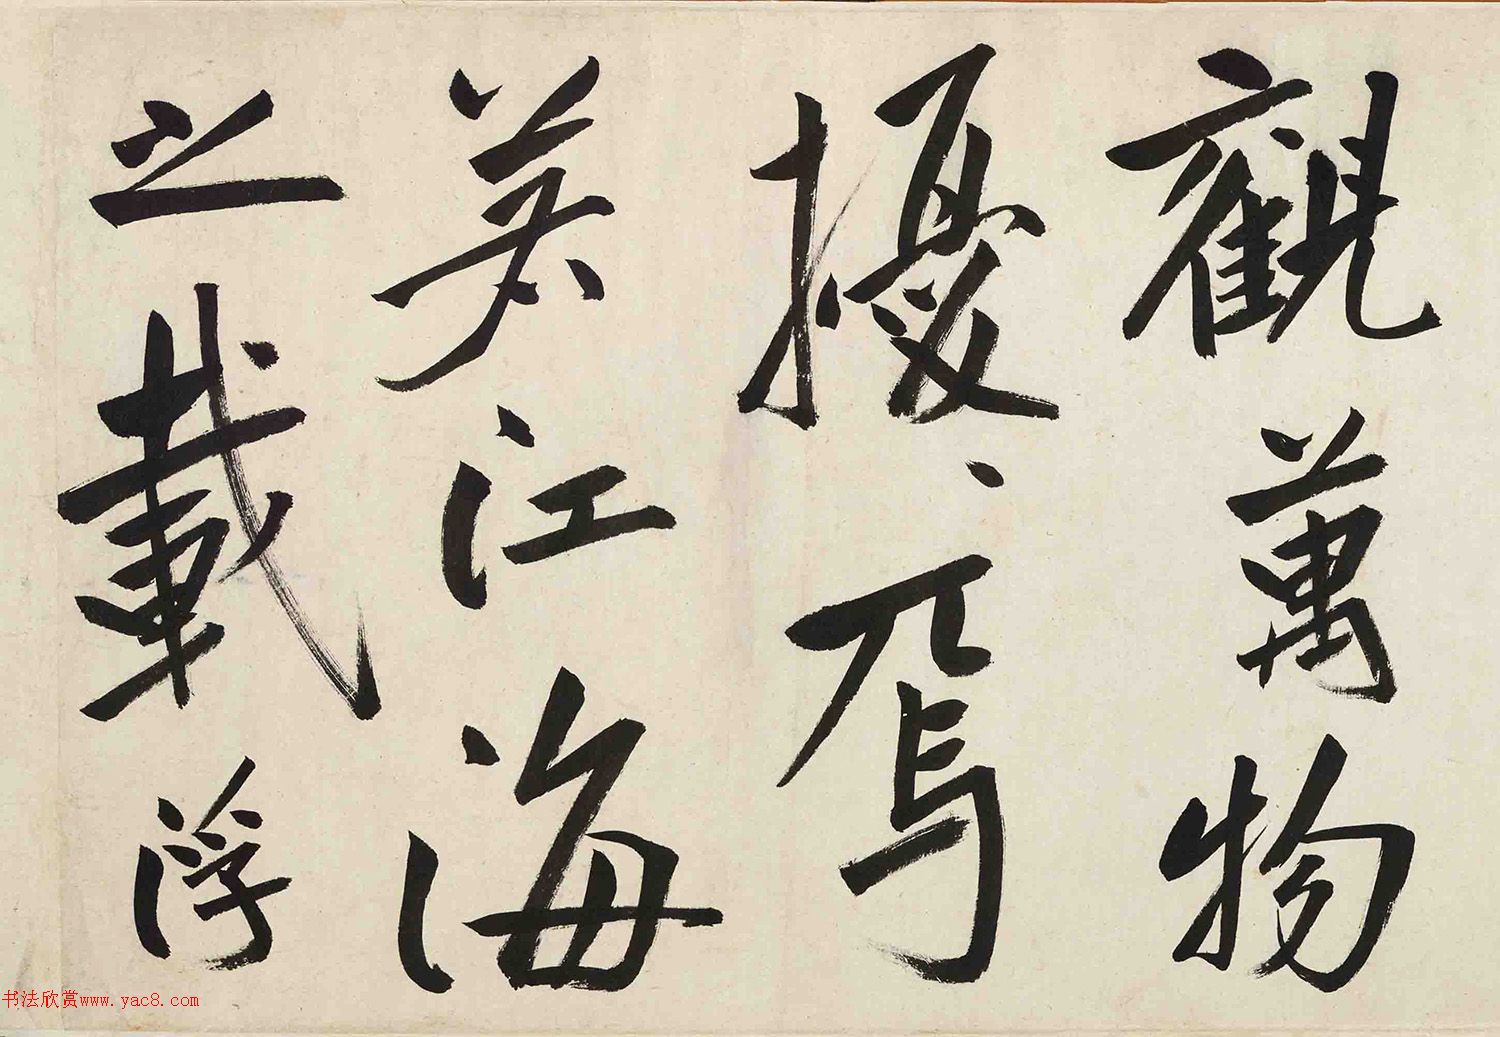 觀萬物
擾〻焉
若江海
之載浮
书法欣赏www.yac8.com